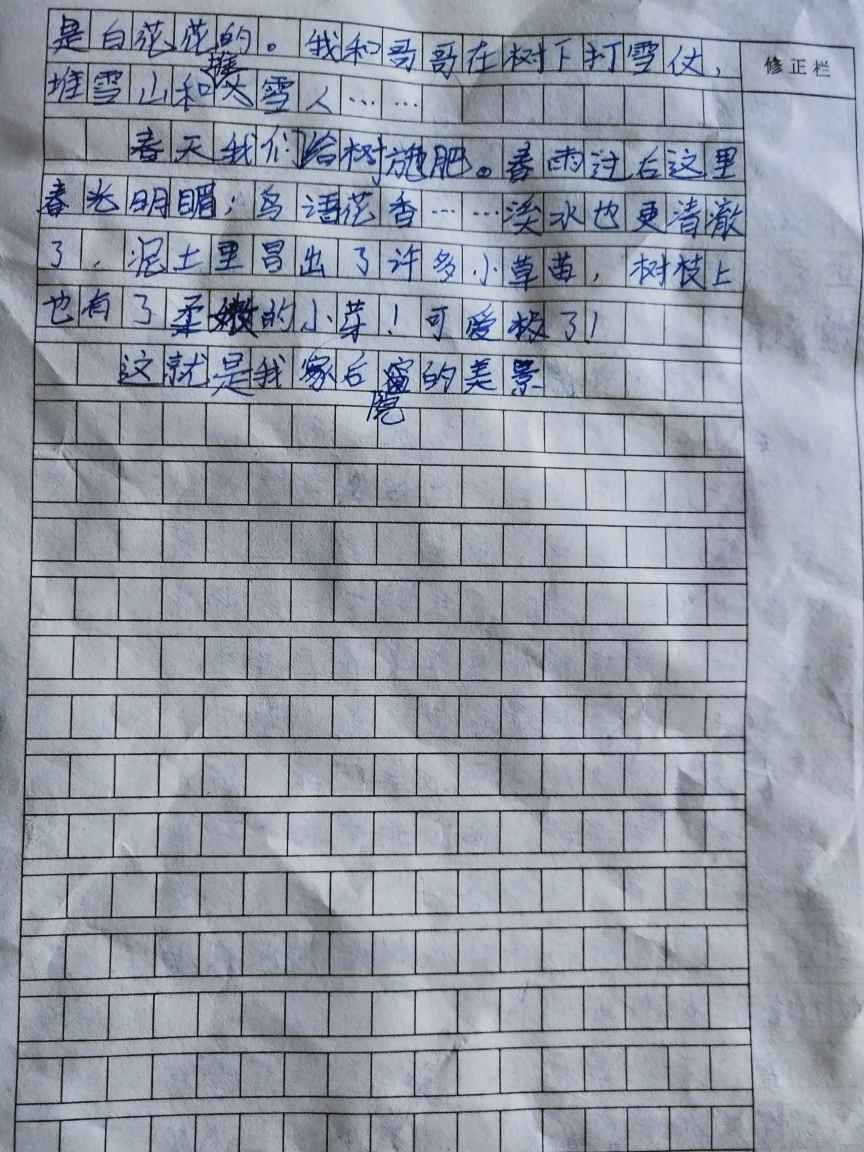 是白花花的。我和哥哥在树下打雪仗，
修正栏
堆雪山和堆大雪人……
春天我们给树施肥。春雨过后这里
春光明媚；鸟语花香……淡水也更清澈
了，泥土里冒出了许多小草苗，树枝上
也有了柔嫩的小芽！可爱极了！
这就是我家后院的美景